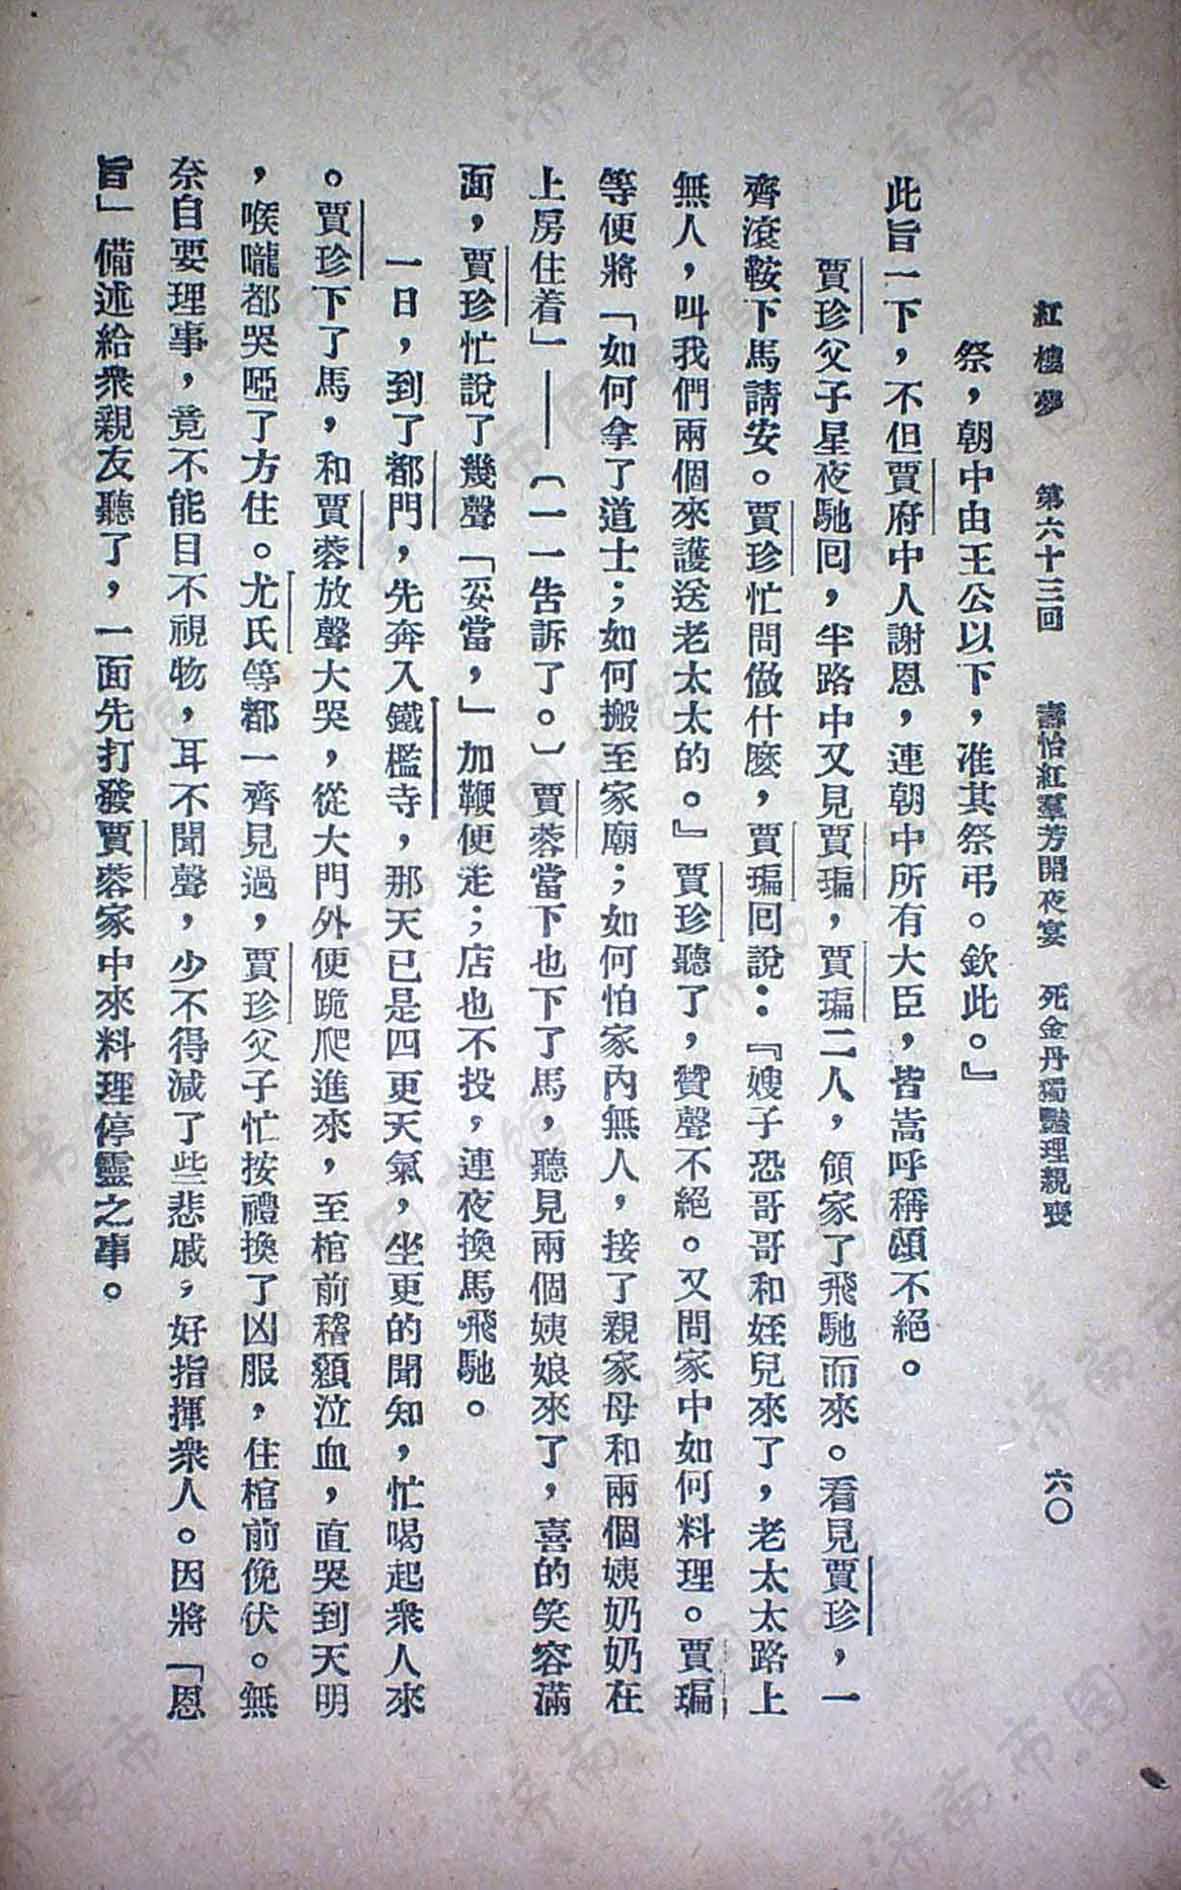 紅樓夢　第六十三回　壽怡紅羣芳開夜宴　死金丹獨豔理親喪　六〇
祭，朝中由王公以下，准其祭弔。欽此。』
此旨一下，不但賈府中人謝恩，連朝中所有大臣，皆嵩呼稱頌不絕。
賈珍父子星夜馳囘，半路中又見賈㻞，賈㻞二人，領家丁飛馳而來。看見賈珍，一
齊滾鞍下馬請安。賈珍忙問做什麽，賈㻞囘說：『嫂子恐哥哥和姪兒來了，老太太路上
無人，叫我們兩個來護送老太太的。』賈珍聽了，贊聲不絕。又問家中如何料理。賈㻞
等便將「如何拿了道士；如何搬至家廟；如何怕家內無人，接了親家母和兩個姨奶奶在
上房住着」——〔一一告訴了。〕賈蓉當下也下了馬，聽見兩個姨娘來了，喜的笑容滿
面，賈珍忙說了幾聲「妥當，」加鞭便走；店也不投，連夜換馬飛馳。
一日，到了都門，先奔入鐵檻寺，那天已是四更天氣，坐更的聞知，忙喝起衆人來
。賈珍下了馬，和賈蓉放聲大哭，從大門外便跪爬進來，至棺前稽顙泣血，直哭到天明
，喉嚨都哭啞了方住。尤氏等都一齊見過，賈珍父子忙按禮換了凶服，住棺前俛伏。無
奈自要理事，竟不能目不視物，耳不聞聲，少不得減了些悲戚，好指揮衆人。因將「恩
旨」備述給衆親友聽了，一面先打發賈蓉家中來料理停靈之事。
济南市图书馆